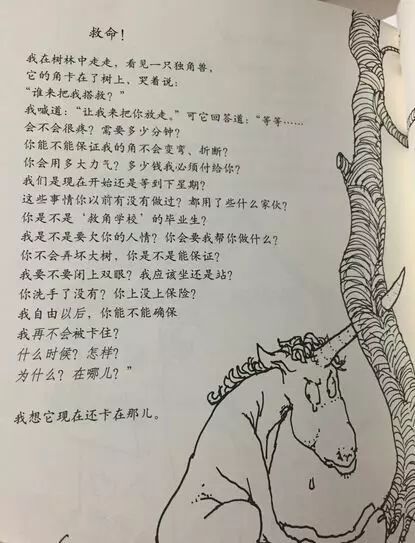 救命!
我在树林中走走，看见一只独角兽，
它的角卡在了树上、哭着说：
“谁来把我搭救？”
我喊道：“让我来把你放走。”可它回答道：“等等……
会不会很疼？需要多少分钟？
你能不能保证我的角不会变弯、折断？
你会用多大力气？多少钱我必须付给你？
我们是现在开始还是等到下星期？
这些事情你以前有没有做过？都用了些什么家伙？
你是不是‘救角学校’的毕业生？
我是不是要欠你的人情？你会要我帮你做什么？
你不会弄坏大树，你是不是能保证？
我要不要闭上双眼？我应该坐还是站？
你洗手了没有？你上没上保险？
我自由以后，你能不能确保
我再不会被卡住？
什么时候？怎样？
为什么？在哪儿？”
我想它现在还卡在那儿。